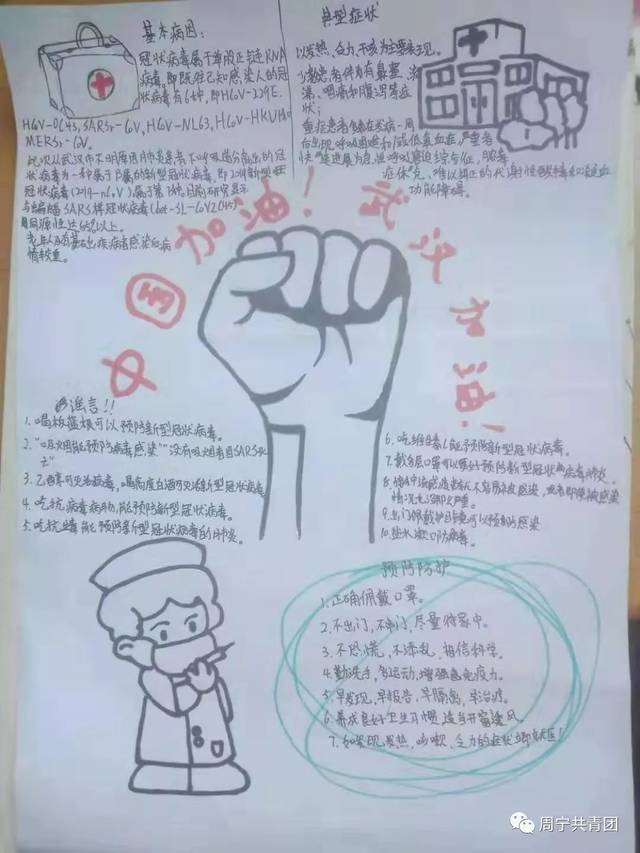 基本病因：
冠状病毒属于单股正链RNA
病毒。即既往已知感染人的冠
状病毒有6种，即HCoV-229E.
HCoV-OC43, SARSr-CoV, HCoV-NL63, HCoV-HKU1和
MERSr-CoV.
此次从武汉市不明原因肺炎患者下呼吸道分离出的冠
状病毒为一种属于β属的新型冠状病毒，即2019新型
冠状病毒(2019-nCoV)属于第7种。目前研究显示
与蝙蝠SARS样冠状病毒(bat-SL-CoVZC45)
同源性达85%以上。
老年人及有基础疾病者感染后病
情较重。
典型症状
以发热、乏力、干咳为主要表现。
少数患者伴有鼻塞、流
涕、咽痛和腹泻等症
状；
重症患者多在发病一周
后出现呼吸困难和/或低氧血症，严重者
快速进展为急性呼吸窘迫综合征、脓毒
症休克、难以纠正的代谢性酸中毒和凝血
功能障碍。
中国加油！武汉加油！
谣言！！
1.喝板蓝根可以预防新型冠状病毒。
2.“吸烟能预防病毒感染”“没有吸烟者因SARS死
亡”
3.乙醇可灭活病毒，喝高度白酒可灭活新型冠状病毒
4.吃抗病毒药物，能预防新型冠状病毒。
5.吃抗生素能预防新型冠状病毒的肺炎。
6.吃维生素C能预防新型冠状病毒。
7.戴多层口罩可以更好预防新型冠状病毒肺炎。
情况也没那么严重。
9.出门佩戴护目镜可以预防感染
10.盐水漱口防病毒。
预防防护
1.正确佩戴口罩。
2.不出门，不串门，尽量待家中。
3.不恐慌，不添乱，相信科学。
4.勤洗手，多运动，增强免疫力。
5.早发现，早报告，早隔离，早治疗。
6.养成良好卫生习惯，适当开窗通风。
7.如发现发热，咳嗽，乏力的症状立即就医！
周宁共青团